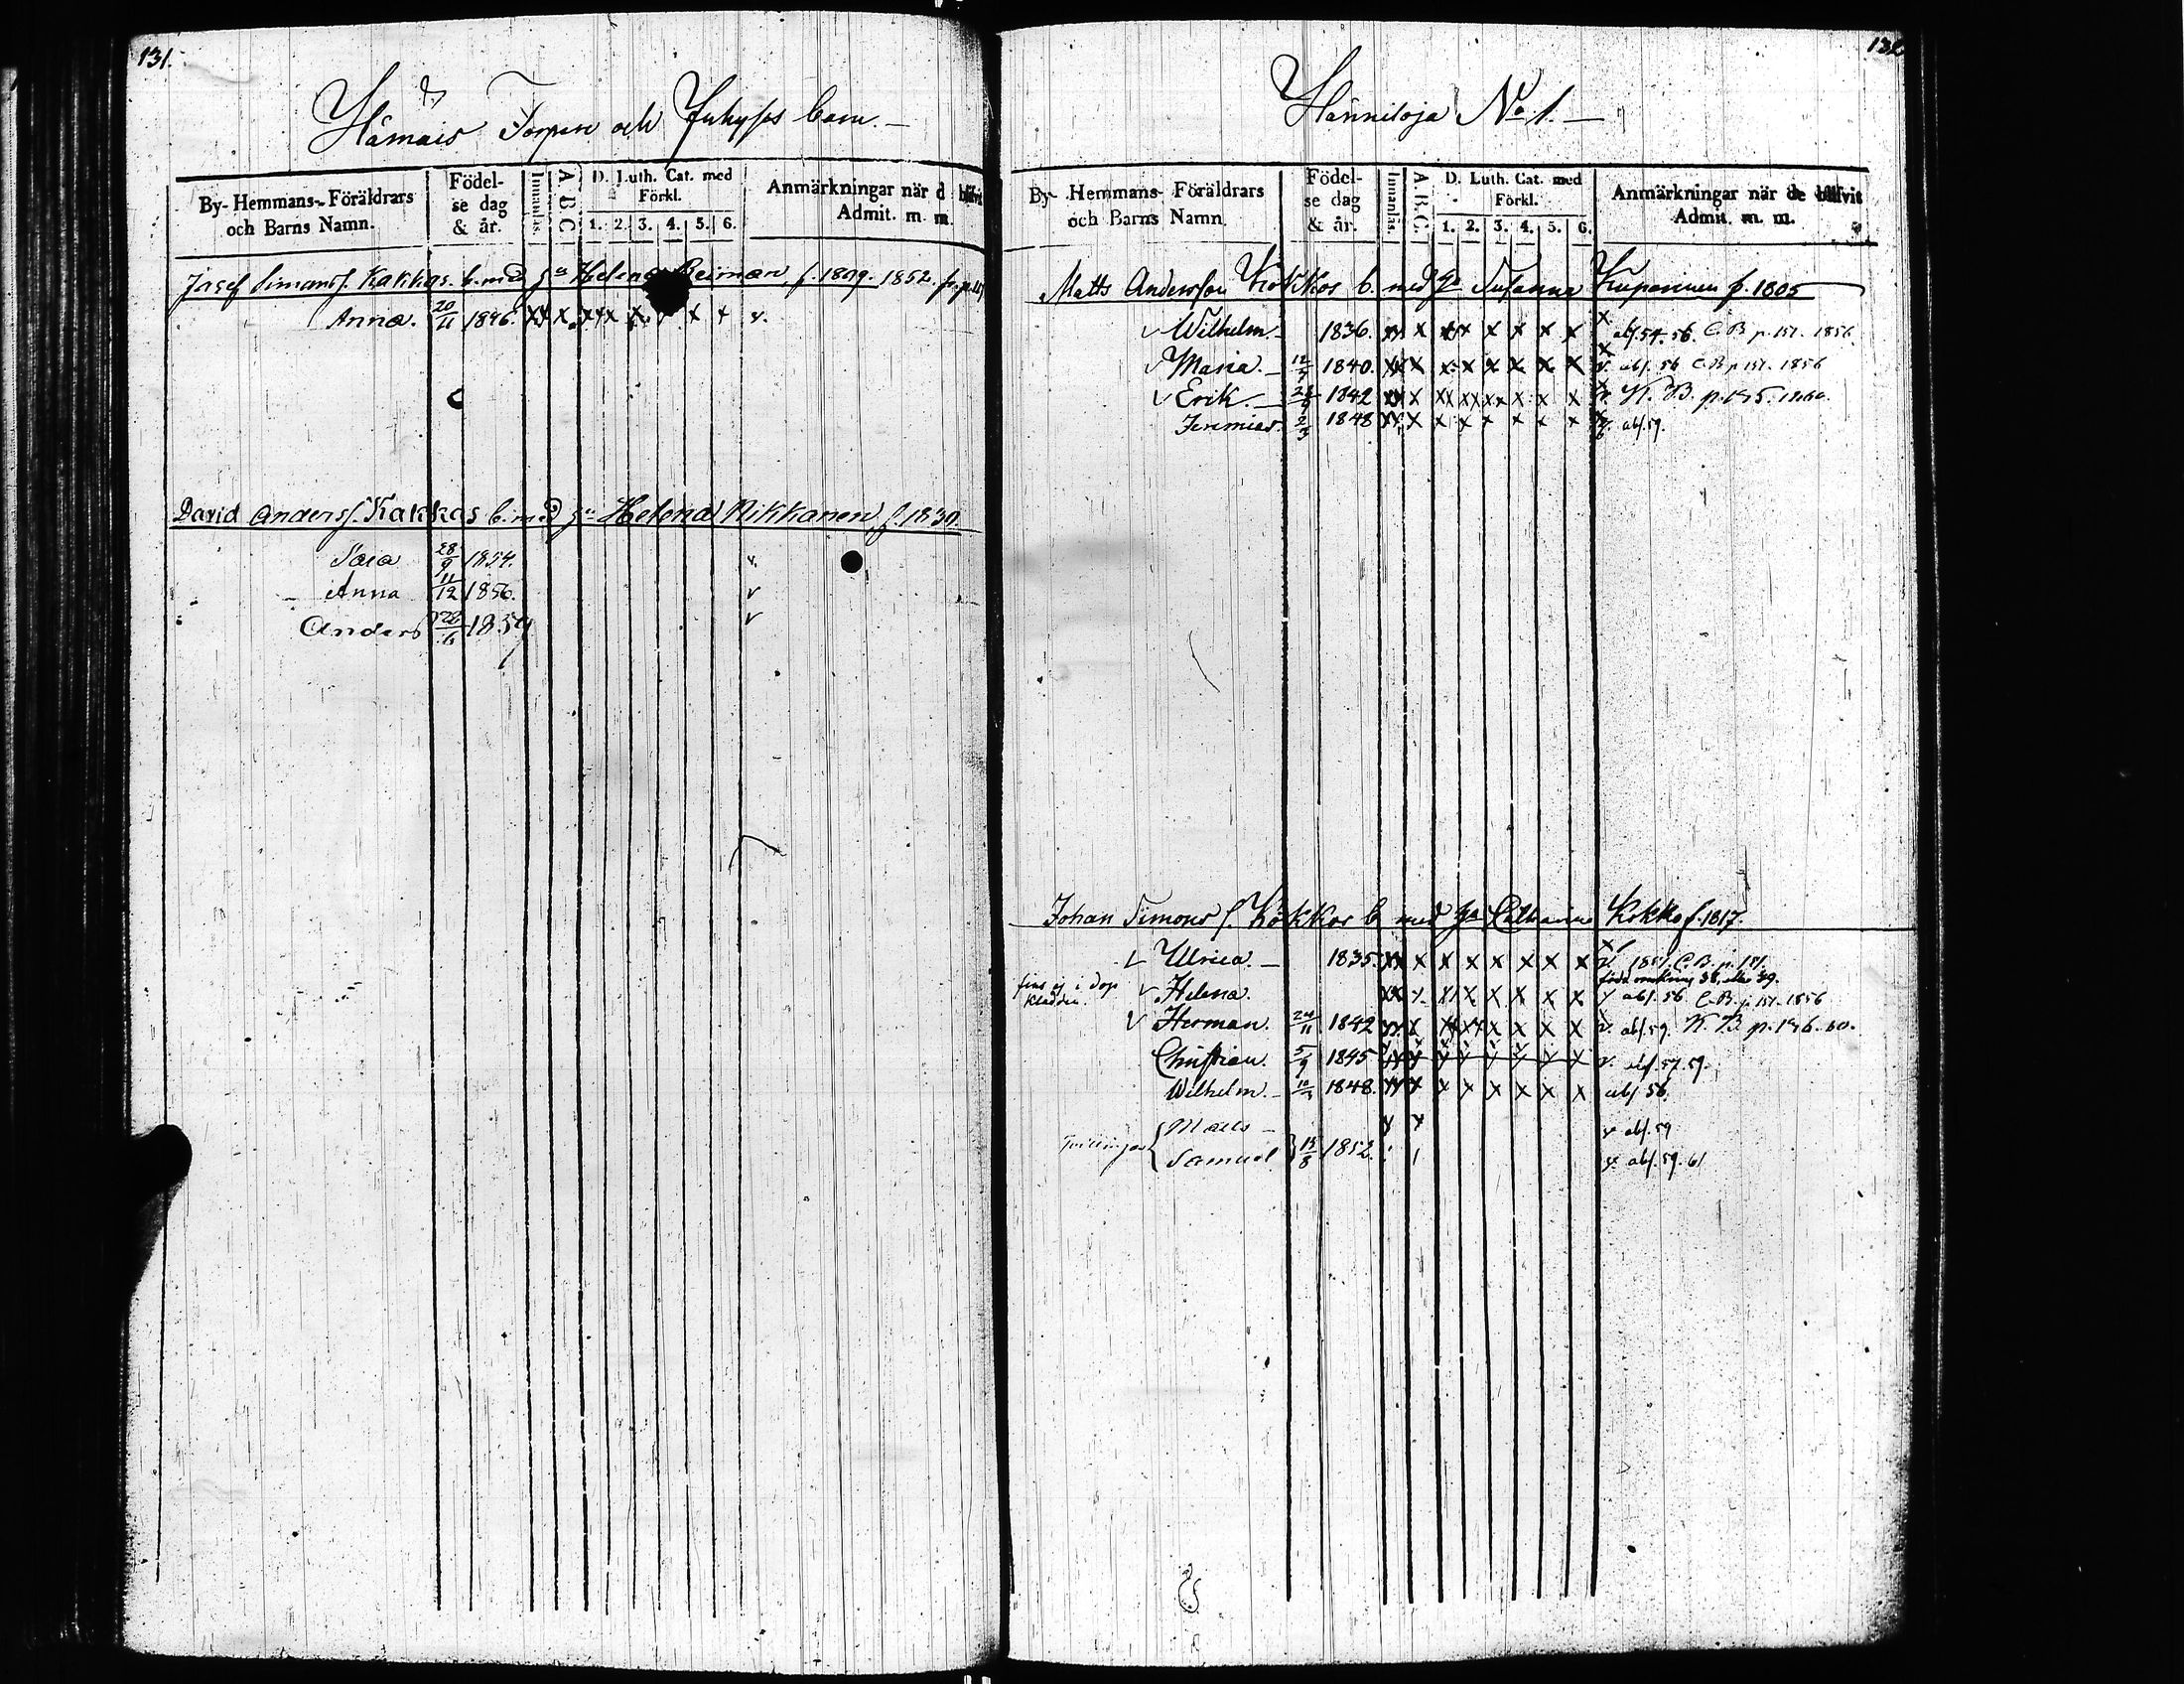 131.
Hämais Torpare och Inhyses barn. —
By- Hemmans- Föräldrars och Barns Namn.
Födelse dag & år.
Innanläs.
A.B.C.
D. Luth. Cat. med Förkl.
1. 2. 3. 4. 5. 6.
Anmärkningar när d blifvit Admit. m. m.
Josef Simonsf. Kakkos. b. med h:u Helena Reiman, f. 1809. 1852.
Anna. 20/11 1846. xx x x x x x x x v.
David Andersf. Kakkos b. med h:u Helena Nikkanen f. 1830.
Sara 28/9 1854. v.
Anna 11/12 1856. v
Anders 22/6 1859 v
Hänniloja No 1. —
By- Hemmans- Föräldrars och Barns Namn.
Födelse dag & år.
Innanläs.
A.B.C.
D. Luth. Cat. med Förkl.
1. 2. 3. 4. 5. 6.
Anmärkningar när de blifvit Admit. m. m.
Matts Andersson Kokkos b. med h:u Susanna Kuparinen f. 1805
v Wilhelm. 1836. xx x xx x x x x x abs. 54. 56. C. B p. 151. 1856.
v Maria. — 12/7 1840. xx x x x x x x x v. abs. 56 C. B p 151. 1856
v Erik. — 1842 xx x xx xx xx x x x v. K. B. p. 195. 1860.
Jeremias. 2/3 1848 xx x x x x x x x abs. 59.
Johan Simons f. Kokkos b med h:u Catharina Kokko f. 1817.
v Ulrica. — 1835. xx x x x x x x x v 1854. C. B. p. 151.
fins ej i dop kladden. v Helena. xx x xx x x x x x född omkring 38, eller 39. abs. 56 C. B. p 151. 1856
v Herman. 24/11 1842 xx x xx xx x x x x v. abs. 59. K. B. p. 196. 60.
Christian. 5/9 1845 xx x x x x x x x v. abs. 57. 59.
Wilhelm. — 1848. xx x x x x x x x abs. 56.
Tvillingar { Matts — x x abs. 59
Samuel } 15/8 1852. abs. 59. 61